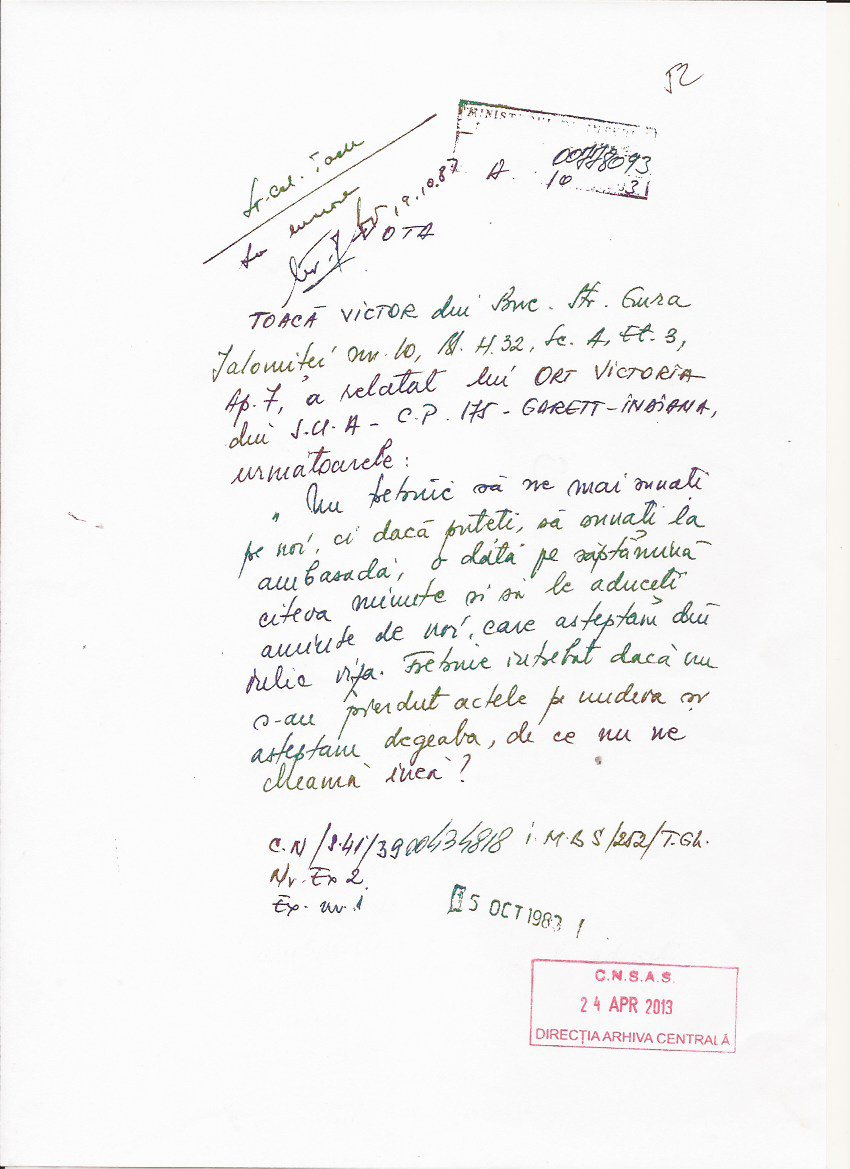 52
MINISTERUL DE INTERNE
A 00778093
10 31
lt. col.
19.10.83
NOTA
TOACĂ VICTOR din Buc. Str. Gura
Ialomiței nr. 10, Bl. M.32, Sc. A, Et. 3,
Ap. 7, a relatat lui ORT VICTORIA
din S.U.A - C.P. 175 - GARETT-INDIANA,
următoarele:
„Nu trebuie să ne mai sunați
pe noi, ci dacă puteți, să sunați la
ambasadă, o dată pe săptămînă
cîteva minute și să le aduceți
aminte de noi, care așteptăm din
iulie viza. Trebuie întrebat dacă nu
s-au pierdut actele pe undeva și
așteptăm degeaba, de ce nu ne
cheamă încă?
C.N/S.41/3900434818 i.M.B S/252/T.Gh.
Nr. Ex 2
Ex. nr. 1
15 OCT 1983
C.N.S.A.S.
24 APR 2013
DIRECȚIA ARHIVA CENTRALĂ